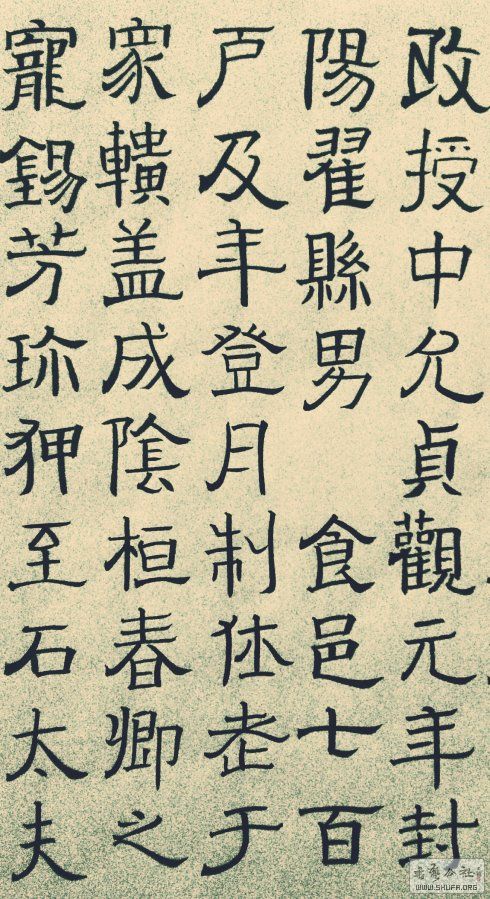 改授中允貞觀元年封
陽翟縣男 食邑七百
戶及年登月制休老于
家盖成陰桓春卿之
寵錫芳珎狎至石太夫
WWW.SHUFA.ORG